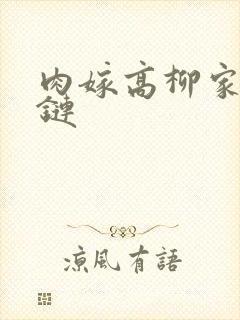 肉嫁高柳家
鏈
涼風有語